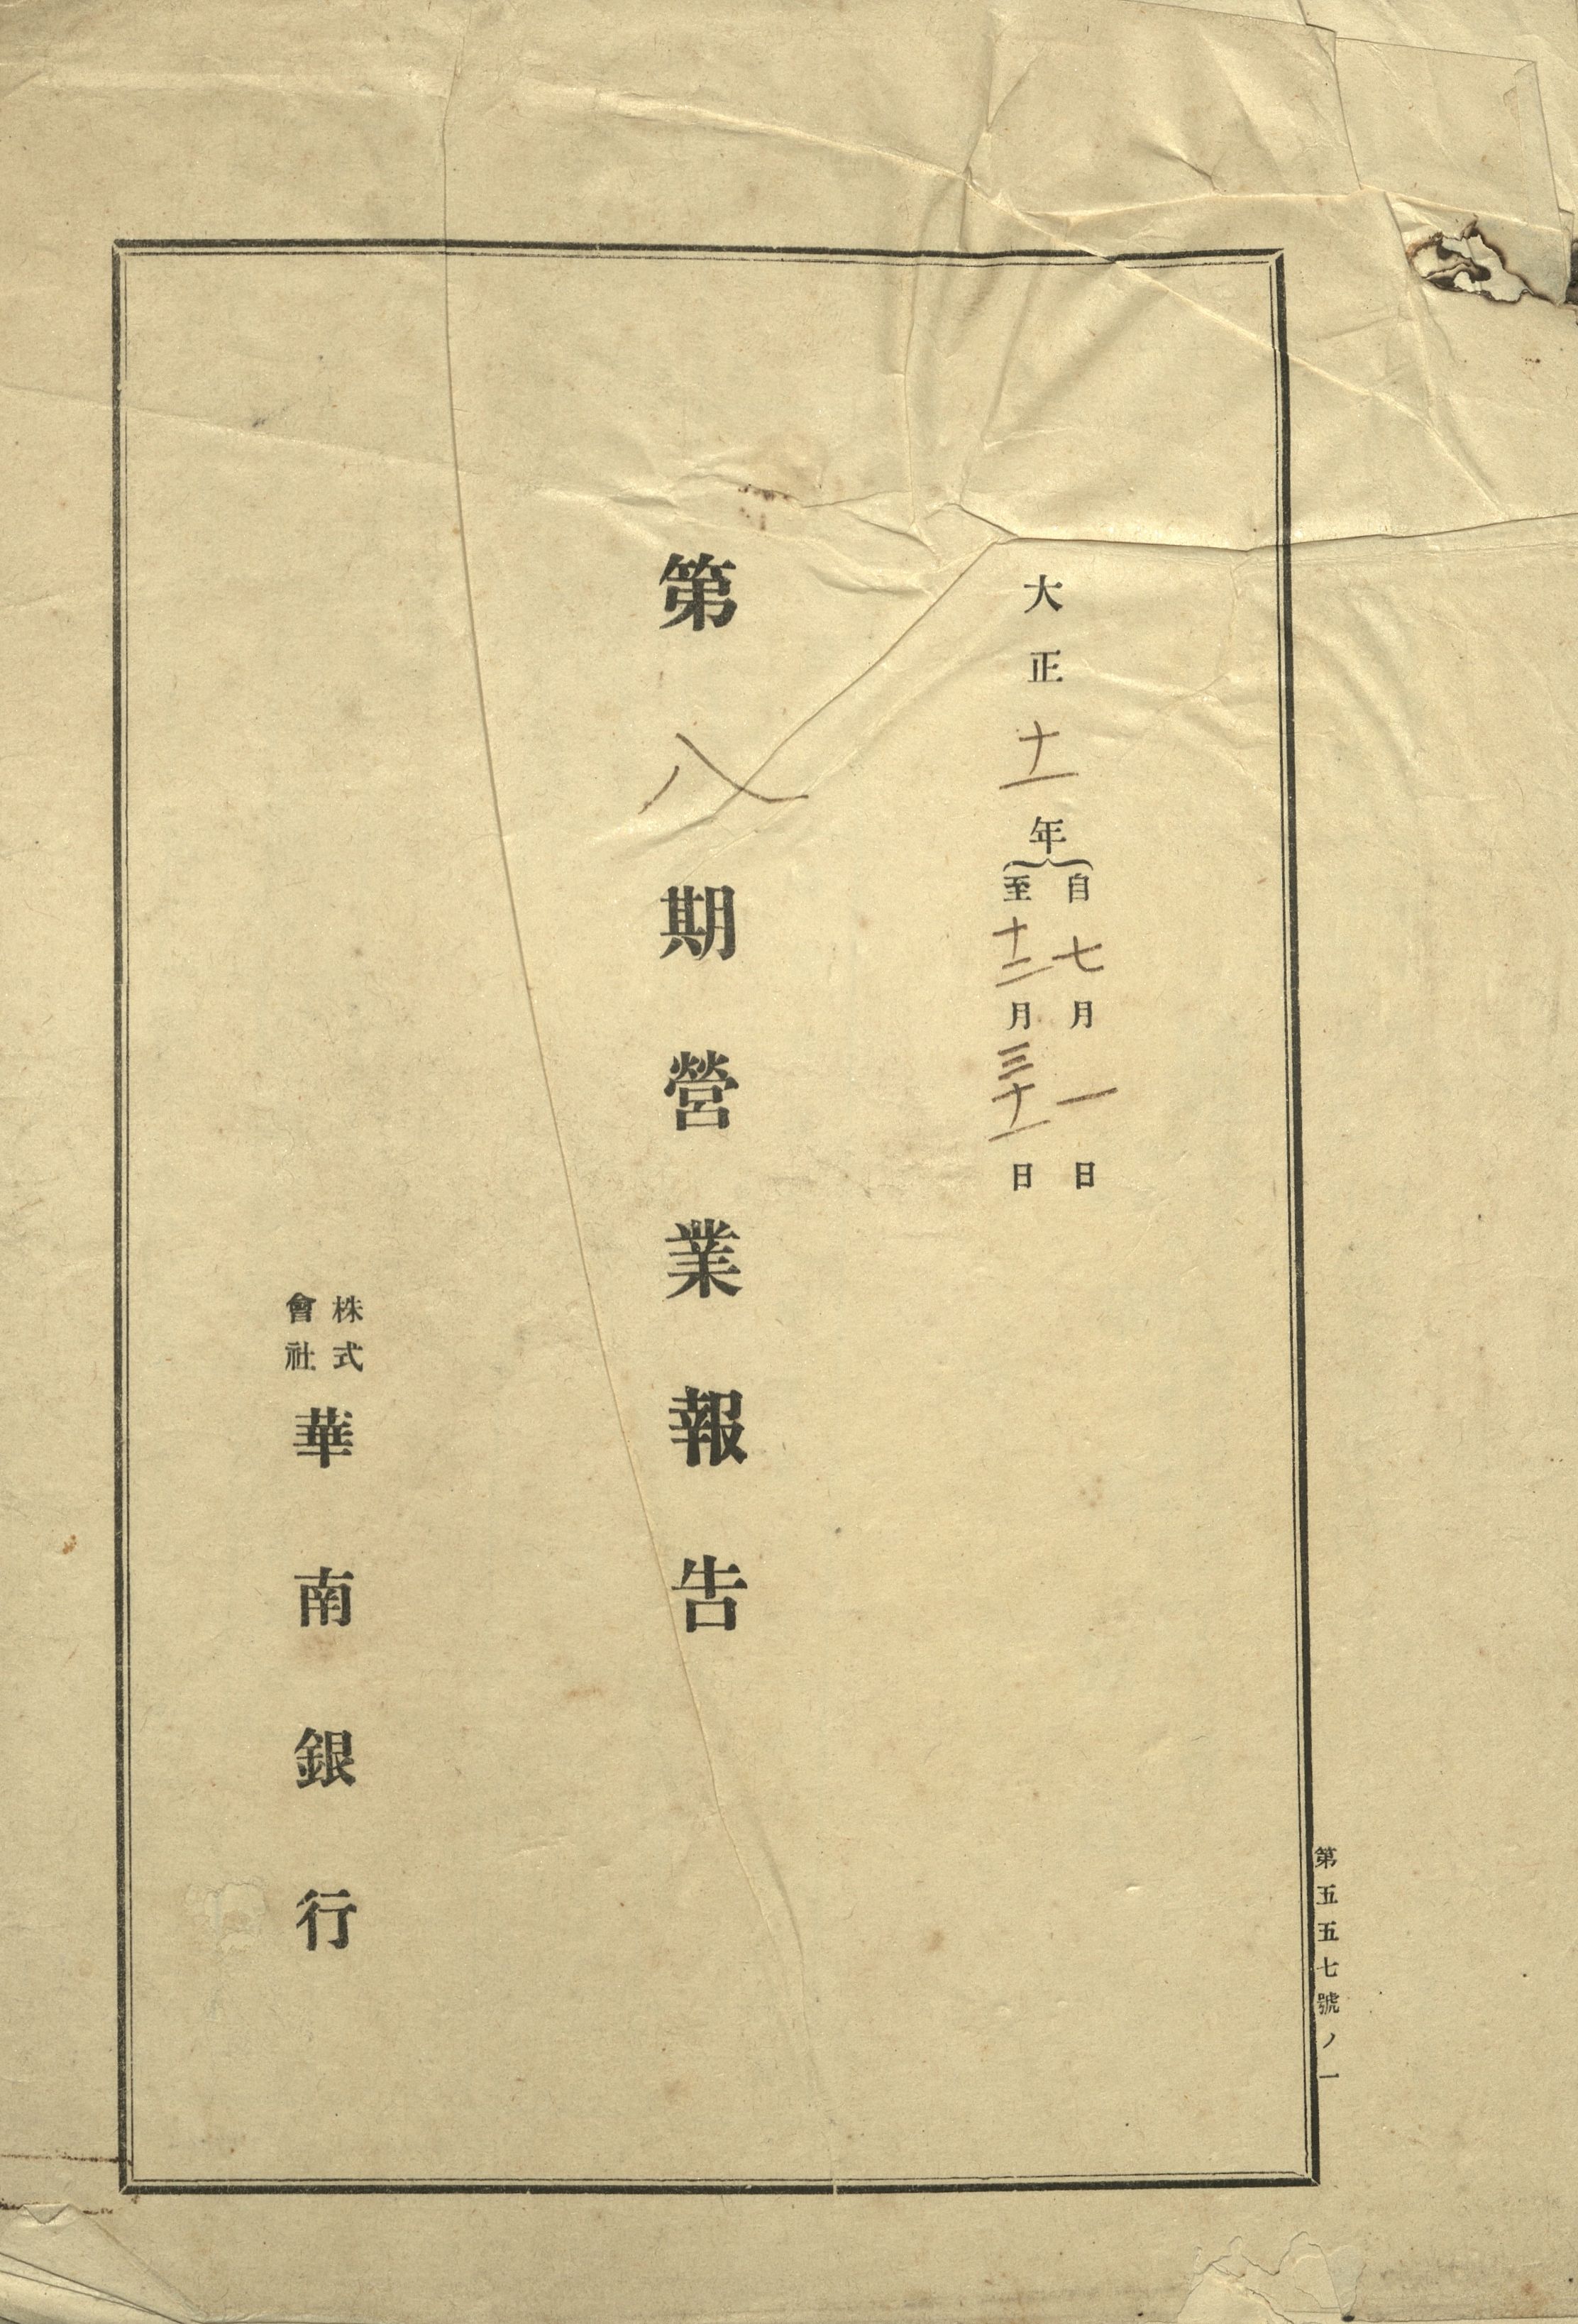 大正十一年
自七月一日
至十二月三十一日
第八期營業報告
株式
會社
華南銀行
第五五七號ノ一